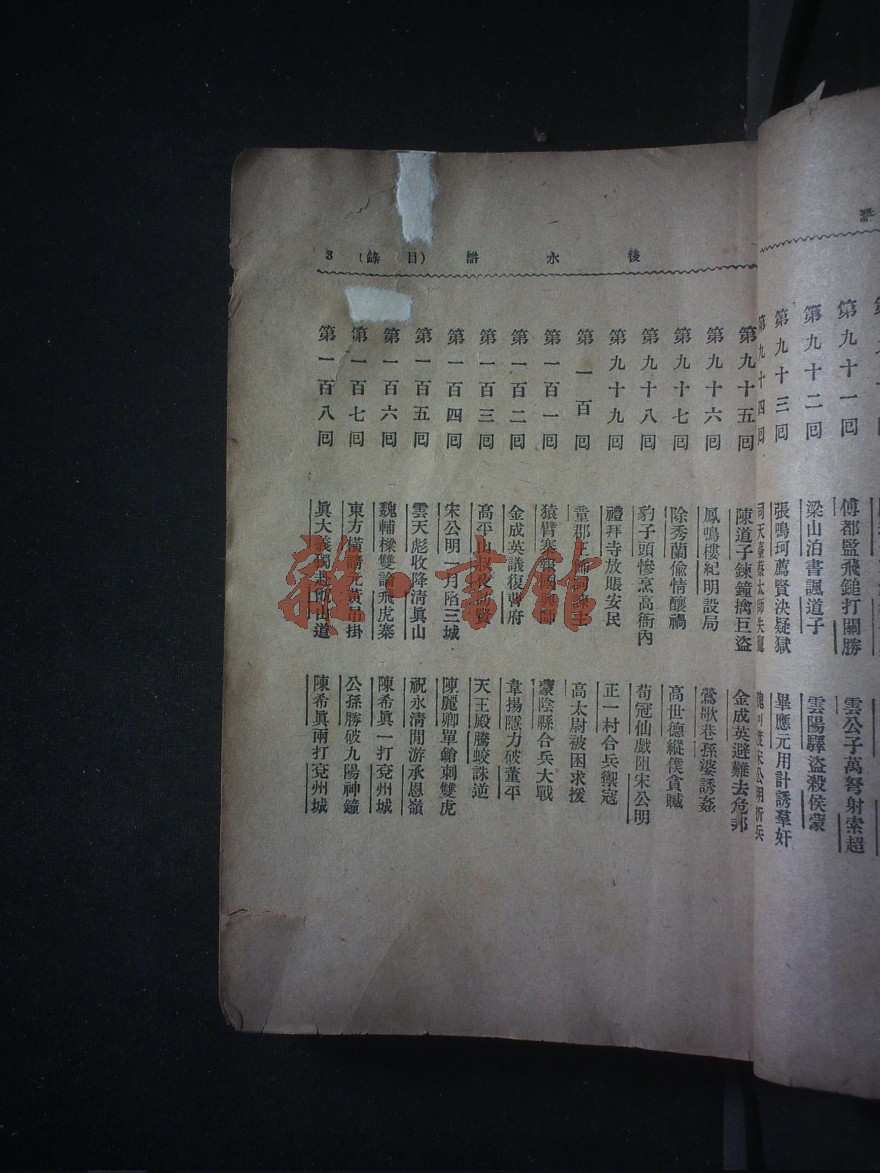 後水滸 (目錄) 3
第九十一回 傅都監飛鎚打關勝 雲公子萬弩射索超
第九十二回 梁山泊書諷道子 雲陽驛盜殺侯蒙
第九十三回 張鳴珂薦賢決疑獄 畢應元用計誘羣奸
第九十四回
第九十五回 陳道子鍊鐘擒巨盜 金成英避難去危邦
第九十六回 鳳鳴樓紀明設局 鶯歌巷孫婆誘姦
第九十七回 陰秀蘭偷情釀禍 高世德縱僕貪贓
第九十八回 豹子頭慘烹高衙內 荀冠仙戲阻宋公明
第九十九回 禮拜寺放賑安民 正一村合兵禦寇
第一百回 高太尉被困求援
第一百一回 猿臂寨 蒙陰縣合兵大戰
第一百二回 金成英議復曹府 韋揚隱力破董平
第一百三回 高平山 天王殿騰蛟誅逆
第一百四回 宋公明一月陷三城 陳麗卿單鎗刺雙虎
第一百五回 雲天彪收降清眞山 祝永清閒游承恩嶺
第一百六回 魏輔樑雙論飛虎寨 陳希眞一打兗州城
第一百七回 東方橫請元黃吊掛 公孫勝破九陽神鐘
第一百八回 眞大義獨赴甑山道 陳希眞兩打兗州城
雜·書館